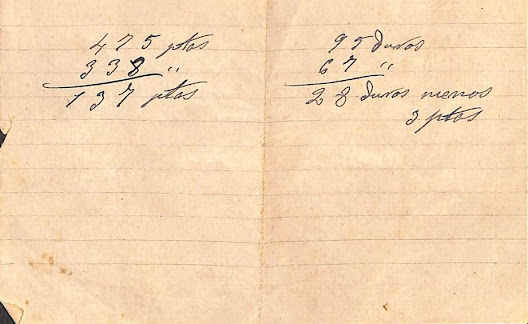 475 ptas
338 "
137 ptas
95 duros
67 "
28 duros menos
3 ptas